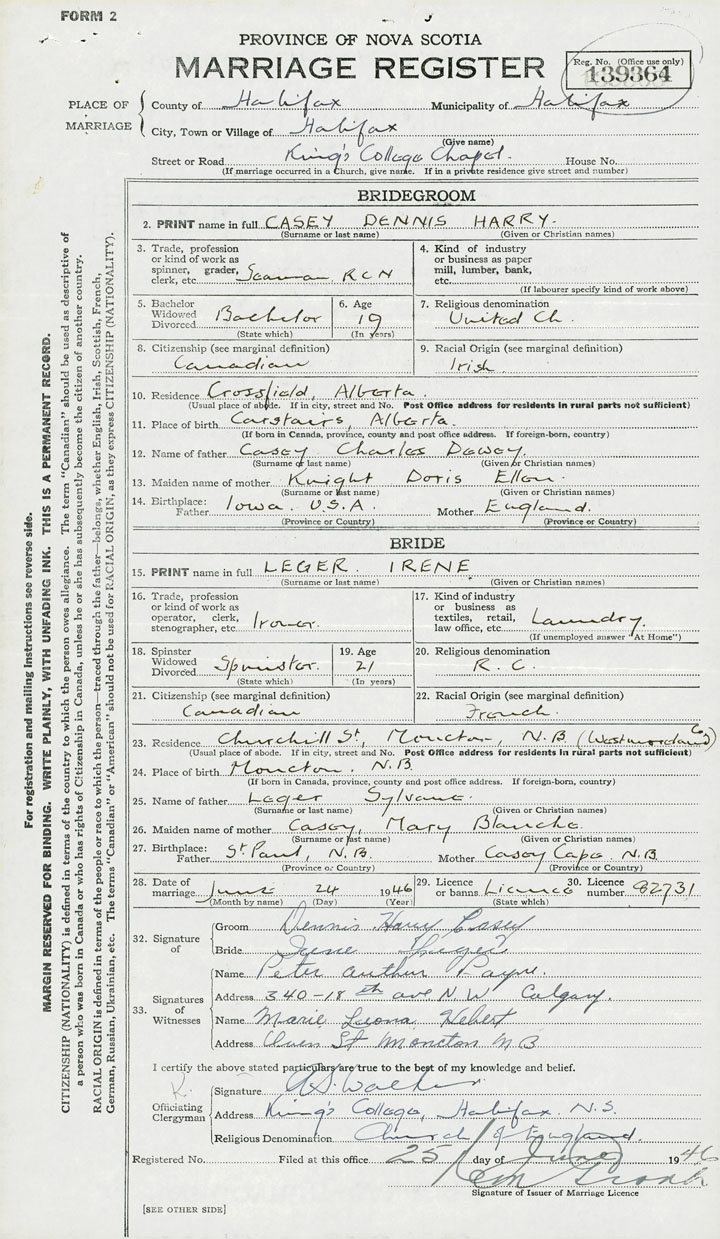 FORM 2
PROVINCE OF NOVA SCOTIA
MARRIAGE REGISTER
Reg. No. (Office use only)
139364
PLACE OF MARRIAGE
County of Halifax Municipality of Halifax
City, Town or Village of Halifax
(Give name)
Street or Road King's College Chapel. House No.
(If marriage occurred in a Church, give name. If in a private residence give street and number)
BRIDEGROOM
2. PRINT name in full CASEY DENNIS HARRY.
(Surname or last name) (Given or Christian names)
3. Trade, profession or kind of work as spinner, grader, clerk, etc. Seaman RCN
4. Kind of industry or business as paper mill, lumber, bank, etc.
(If labourer specify kind of work above)
5. Bachelor Widowed Divorced Bachelor
(State which)
6. Age 19
(In years)
7. Religious denomination
United Ch.
8. Citizenship (see marginal definition)
Canadian
9. Racial Origin (see marginal definition)
Irish
10. Residence Crossfield, Alberta.
(Usual place of abode. If in city, street and No. Post Office address for residents in rural parts not sufficient)
11. Place of birth Carstairs, Alberta.
(If born in Canada, province, county and post office address. If foreign-born, country)
12. Name of father Casey Charles Dewey.
(Surname or last name) (Given or Christian names)
13. Maiden name of mother Knight Doris Ellen.
(Surname or last name) (Given or Christian names)
14. Birthplace: Father Iowa. U.S.A. Mother England.
(Province or Country) (Province or Country)
BRIDE
15. PRINT name in full LEGER. IRENE
(Surname or last name) (Given or Christian names)
16. Trade, profession or kind of work as operator, clerk, stenographer, etc. Ironer.
17. Kind of industry or business as textiles, retail, law office, etc. Laundry.
(If unemployed answer "At Home")
18. Spinster Widowed Divorced Spinster.
(State which)
19. Age 21
(In years)
20. Religious denomination
R. C.
21. Citizenship (see marginal definition)
Canadian
22. Racial Origin (see marginal definition)
French.
23. Residence Churchill St, Moncton, N.B (Westmorland Co)
(Usual place of abode. If in city, street and No. Post Office address for residents in rural parts not sufficient)
24. Place of birth Moncton. N.B.
(If born in Canada, province, county and post office address. If foreign-born, country)
25. Name of father Leger Sylvane.
(Surname or last name) (Given or Christian names)
26. Maiden name of mother Casey, Mary Blanche.
(Surname or last name) (Given or Christian names)
27. Birthplace: Father St Paul, N.B. Mother Casey Cape. N.B.
(Province or Country) (Province or Country)
28. Date of marriage June 24 1946
(Month by name) (Day) (Year)
29. Licence or banns Licence
(State which)
30. Licence number 92731
32. Signature of
Groom Dennis Harry Casey
Bride Irene Leger
33. Signatures of Witnesses
Name Peter Arthur Payne.
Address 340-18th ave N.W Calgary.
Name Marie Leona Hebert
Address St Moncton N B
I certify the above stated particulars are true to the best of my knowledge and belief.
Officiating Clergyman
Signature Walker
Address King's College, Halifax. N.S.
Religious Denomination Church of England.
Registered No. Filed at this office 25 day of June 1946
Signature of Issuer of Marriage Licence
[SEE OTHER SIDE]
For registration and mailing instructions see reverse side.
MARGIN RESERVED FOR BINDING. WRITE PLAINLY, WITH UNFADING INK. THIS IS A PERMANENT RECORD.
CITIZENSHIP (NATIONALITY) is defined in terms of the country to which the person owes allegiance. The term "Canadian" should be used as descriptive of
a person who was born in Canada or who has rights of Citizenship in Canada, unless he or she has subsequently become the citizen of another country.
RACIAL ORIGIN is defined in terms of the people or race to which the person—traced through the father—belongs, whether English, Irish, Scottish, French,
German, Russian, Ukrainian, etc. The terms "Canadian" or "American" should not be used for RACIAL ORIGIN, as they express CITIZENSHIP (NATIONALITY).